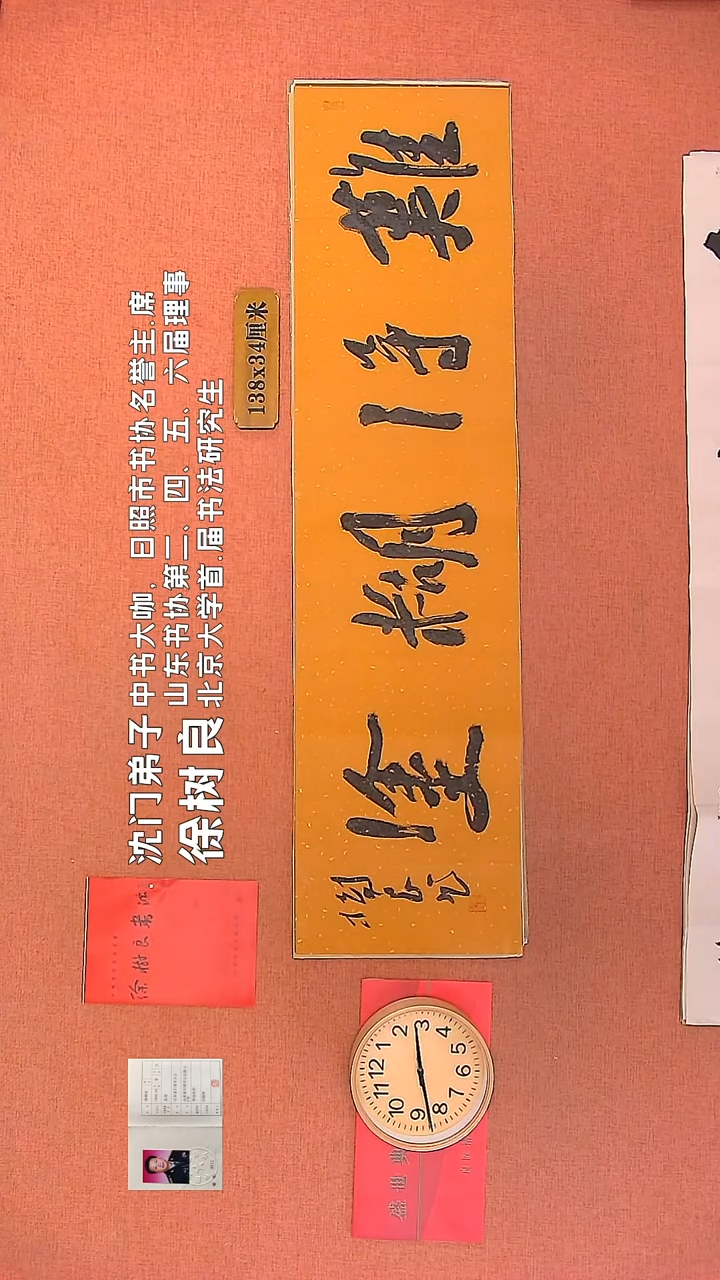 沈门弟子 中书大咖，日照市书协名誉主.席
山东书协第二、四、五、六届理事
徐树良 北京大学首.届书法研究生
138x34厘米
難得糊塗
樹良
徐樹良書法
盛世典
12
1
2
3
4
5
6
7
8
9
10
11